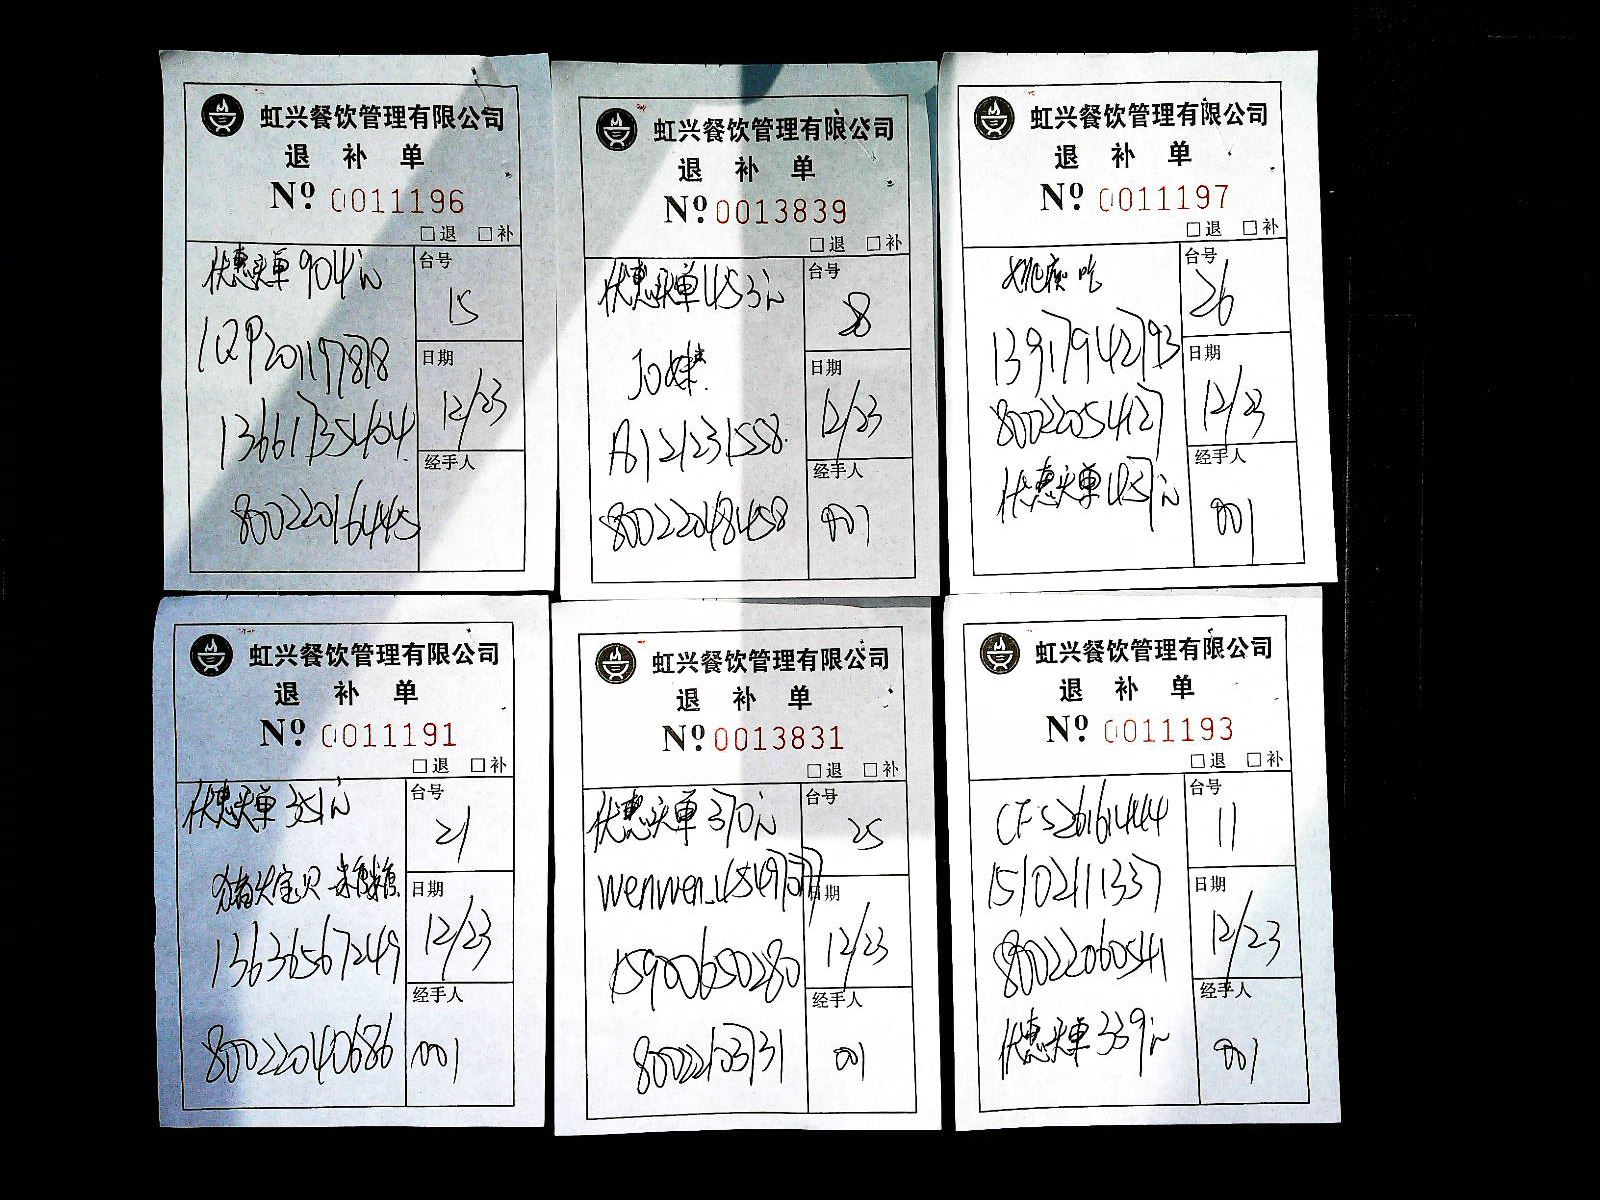 虹兴餐饮管理有限公司
退 补 单
Nº 0011196
□退 □补
优惠买单904元
台号
15
1QP201197878
日期
12/23
13661735404
经手人
80022016445
虹兴餐饮管理有限公司
退 补 单
Nº 0013839
□退 □补
优惠买单453元
台号
8
Jo妹
日期
12/23
A6121231558
经手人
80022048458
001
虹兴餐饮管理有限公司
退 补 单
Nº 0011197
□退 □补
台号
26
13917942793
日期
12/23
80022054127
经手人
优惠买单437元
001
虹兴餐饮管理有限公司
退 补 单
Nº 0011191
□退 □补
优惠买单351元
台号
21
猪头宝贝
日期
12/23
13636567249
经手人
80022040686
001
虹兴餐饮管理有限公司
退 补 单
Nº 0013831
□退 □补
优惠买单370元
台号
25
wenwen_4549707
日期
12/23
15900650280
经手人
80022103731
001
虹兴餐饮管理有限公司
退 补 单
Nº 0011193
□退 □补
CFS26161444
台号
11
15102111337
日期
12/23
80022060541
经手人
优惠买单339元
001